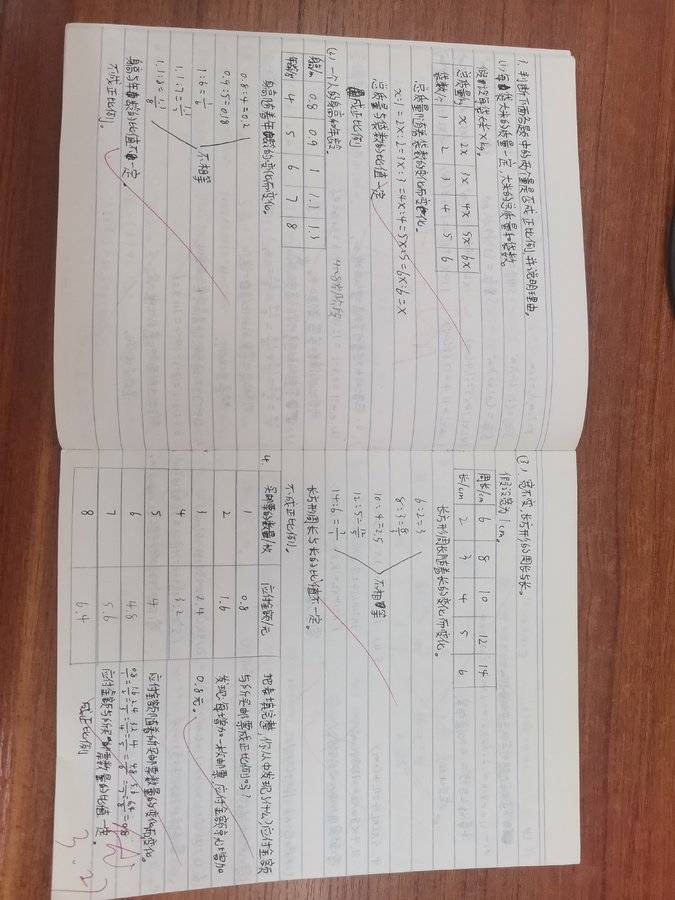 1. 判断下面各题中的两个量是否成正比例,并说明理由。
(1) 每袋大米的质量一定,大米的总质量和袋数。
假设每袋大米xkg。
总质量/kg x 2x 3x 4x 5x 6x
袋数/袋 1 2 3 4 5 6
总质量随着袋数的变化而变化。
x:1=2x:2=3x:3=4x:4=5x:5=6x:6=x
总质量与袋数的比值一定
成正比例
(2) 一个人的身高和年龄。 4~8岁阶段
身高/m 0.8 0.9 1 1.1 1.3
年龄/岁 4 5 6 7 8
身高随着年龄的变化而变化。
0.8:4=0.2
0.9:5=0.18
1:6=1/6
不相等
1.1:7=
身高与年龄的比值不一定。
不成正比例。
(3) 宽不变,长方形的周长与长。
假设宽为1cm。
周长/cm 6 8 10 12 14
长/cm 2 3 4 5 6
长方形周长随着长的变化而变化。
6:2=3
8:3=8/3
10:4=2.5
不相等
12:5=12/5
14:6=7/3
长方形周长与长的比值不一定。
不成正比例。
4.
买邮票的数量/枚 应付金额/元
1 0.8
2 1.6
3 2.4
4 3.2
5 4
6 4.8
7 5.6
8 6.4
把表填完整,你从中发现了什么?应付金额
与所买邮票成正比例吗?
发现:每增加一枚邮票,应付金额就增加
0.8元。
应付金额随着所买邮票数量的变化而变化。
应付金额与所买邮票数量的比值一定。
成正比例
3.27